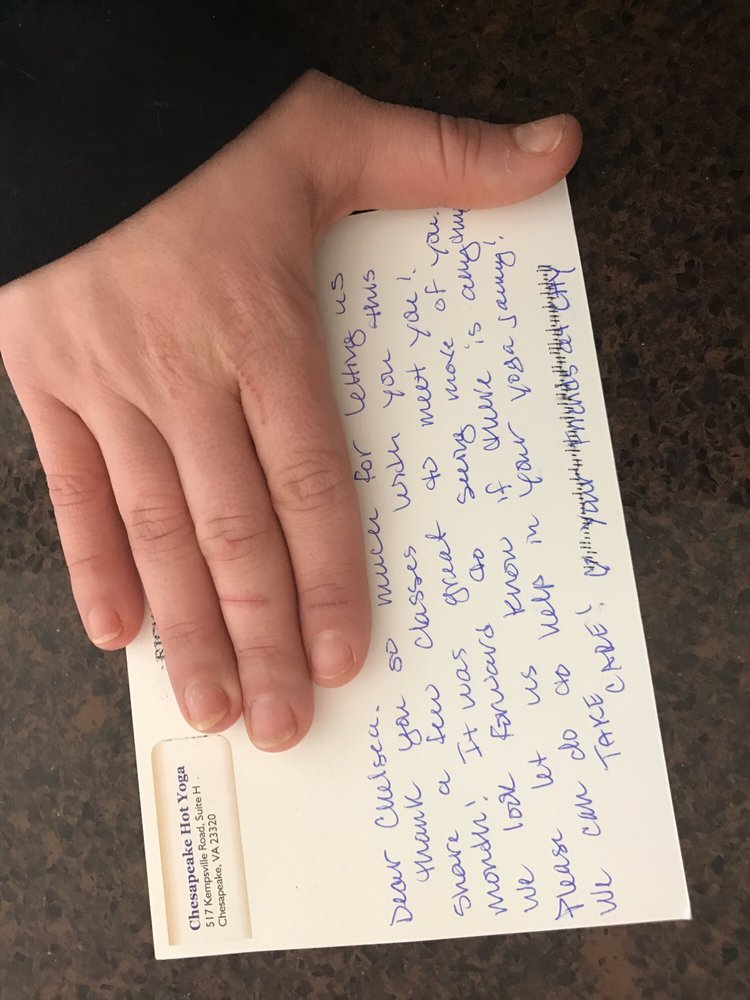 Chesapeake Hot Yoga
517 Kempsville Road, Suite H
Chesapeake, VA 23320
Dear Chelsea.
Thank you so much for letting us
share a few classes with you this
month! It was great to meet you!
We look forward to seeing more of you.
Please let us know if there is anything
We can do to help in your yoga journey!
TAKE CARE! your friends at CHY